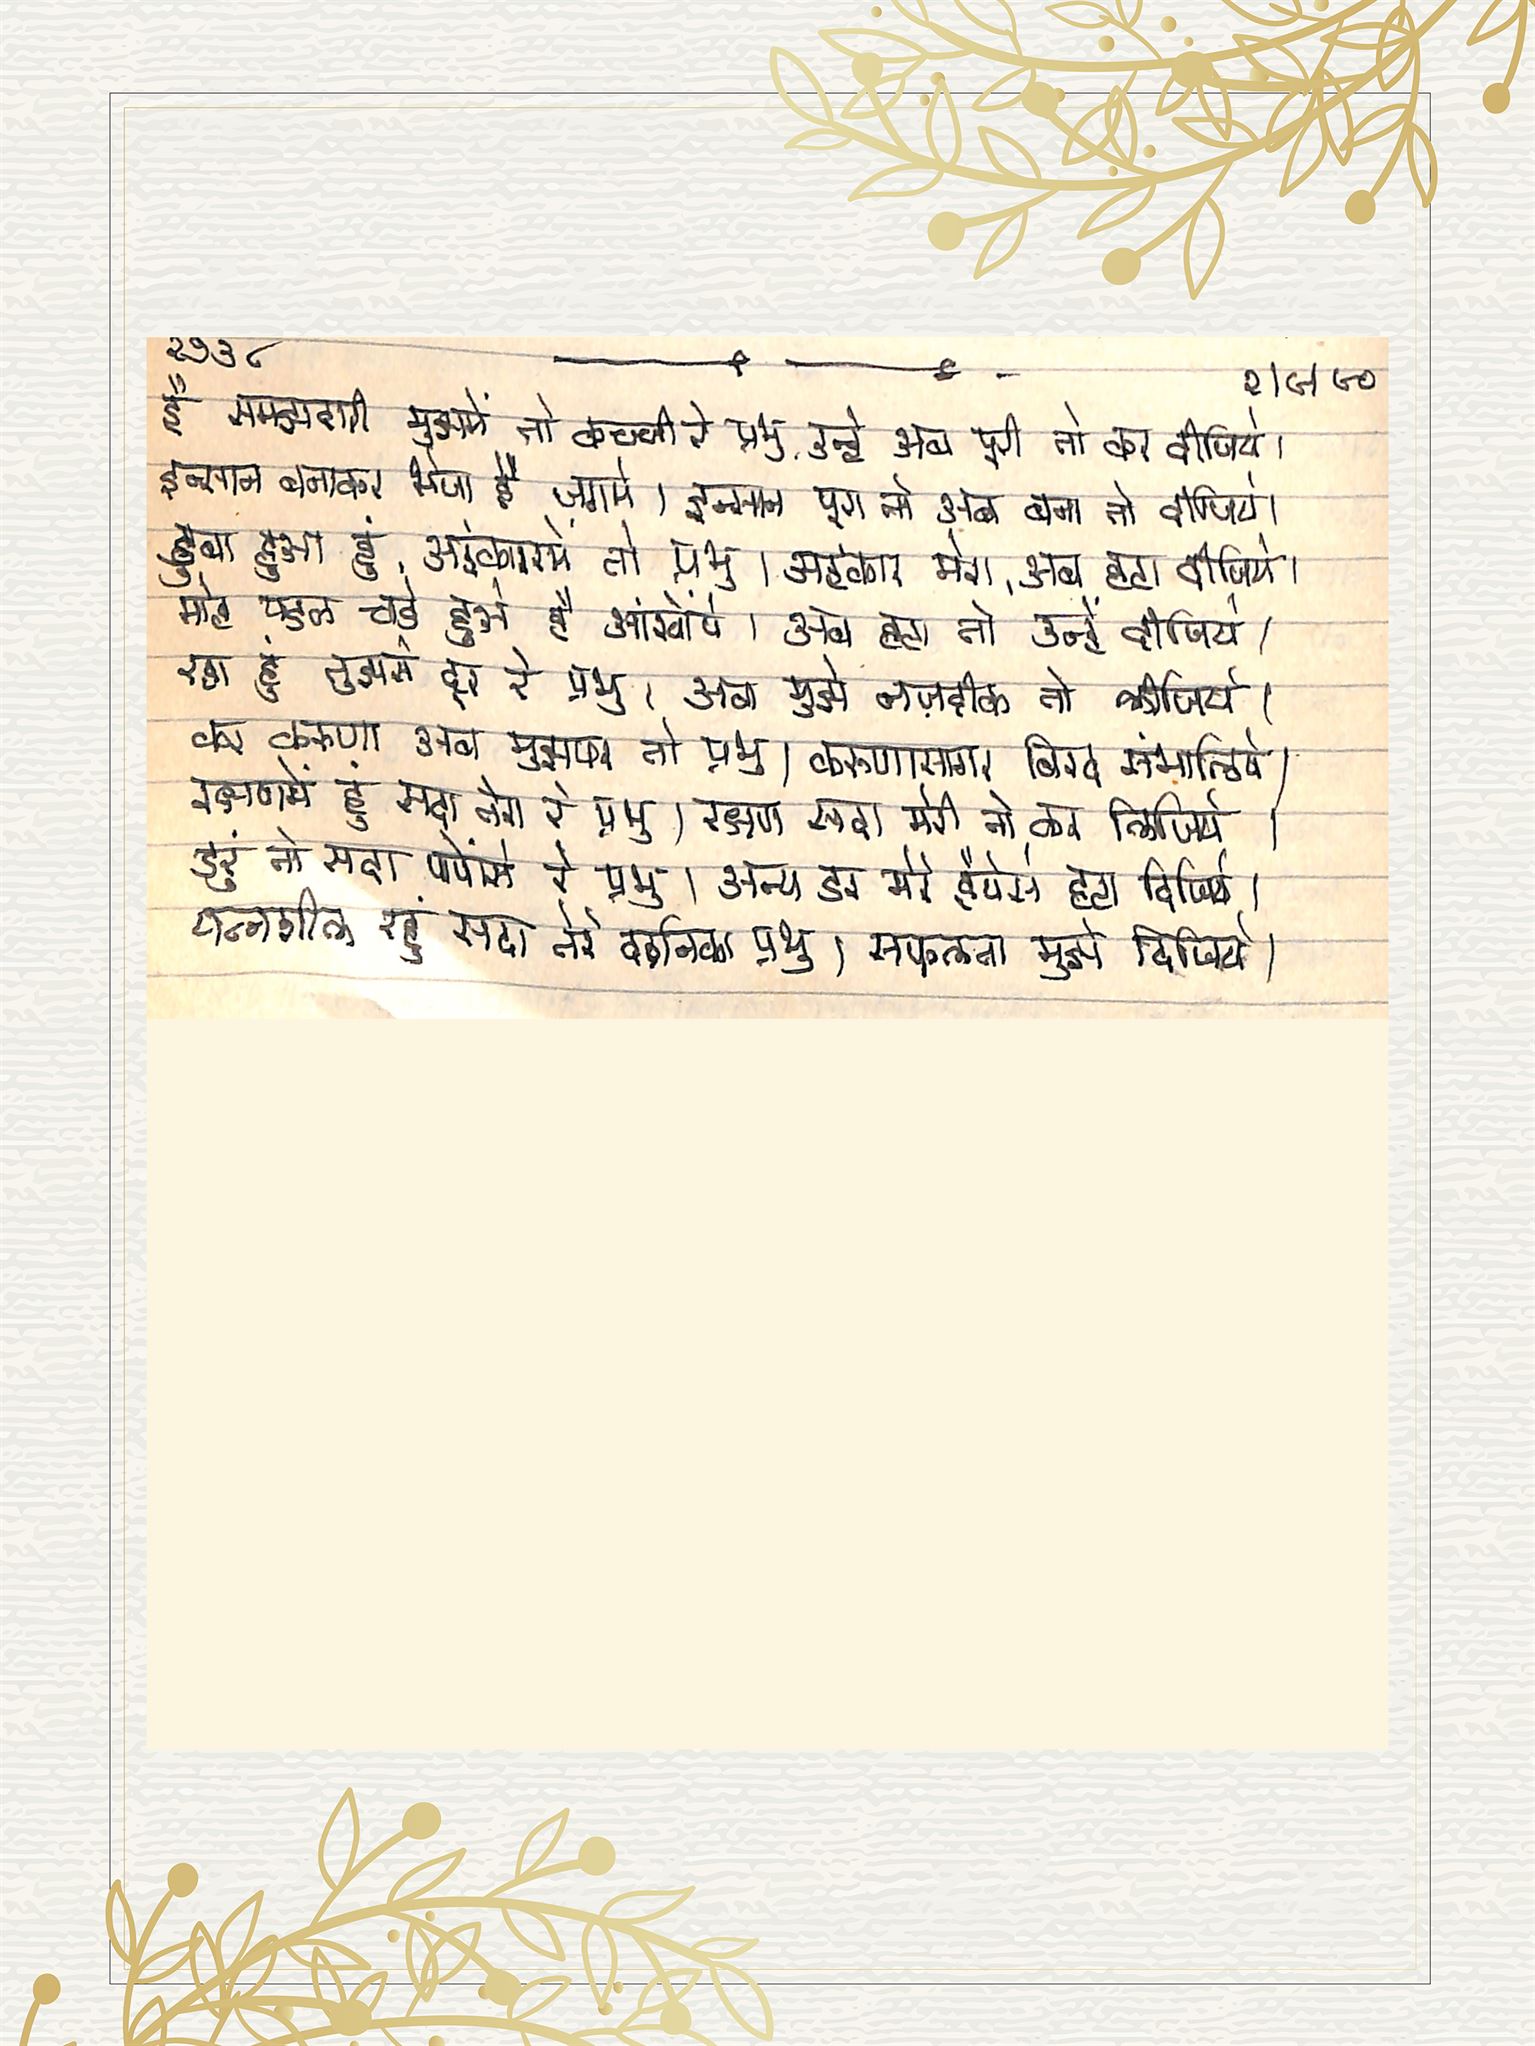 २७३८
२।८।९०
है समझदारी मुझमें तो कच्ची रे प्रभु, उन्हे अब पूरी तो कर दीजिये।
इन्सान बनाकर भेजा है जगमें। इन्सान पूरा तो अब बना तो दीजिये।
डुबा हुआ हुं, अहंकारमें तो प्रभु। अहंकार मेरा, अब हटा दीजिये।
मोह पडल चडे हुअे है आंखोंपे। अब हटा तो उन्हें दीजिये।
रहा हुं तुझसे दूर रे प्रभु। अब मुझे नज़दीक तो लीजिये।
कर करुणा अब मुझपर तो प्रभु। करुणासागर बिरद संभालिये।
रक्षणमें हुं सदा तेरा रे प्रभु। रक्षण सदा मेरी तो कर लिजिये।
डरुं तो सदा पापोंसे रे प्रभु। अन्य डर मेरे हैयेसे हटा दिजिये।
यत्नशील रहुं सदा तेरे दर्शनका प्रभु। सफलता मुझे दिजिये।